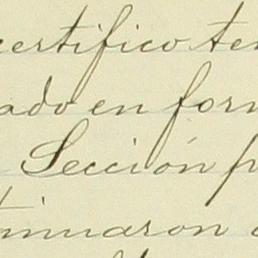 certifico ten
ado en form
Sección p
tinuaron